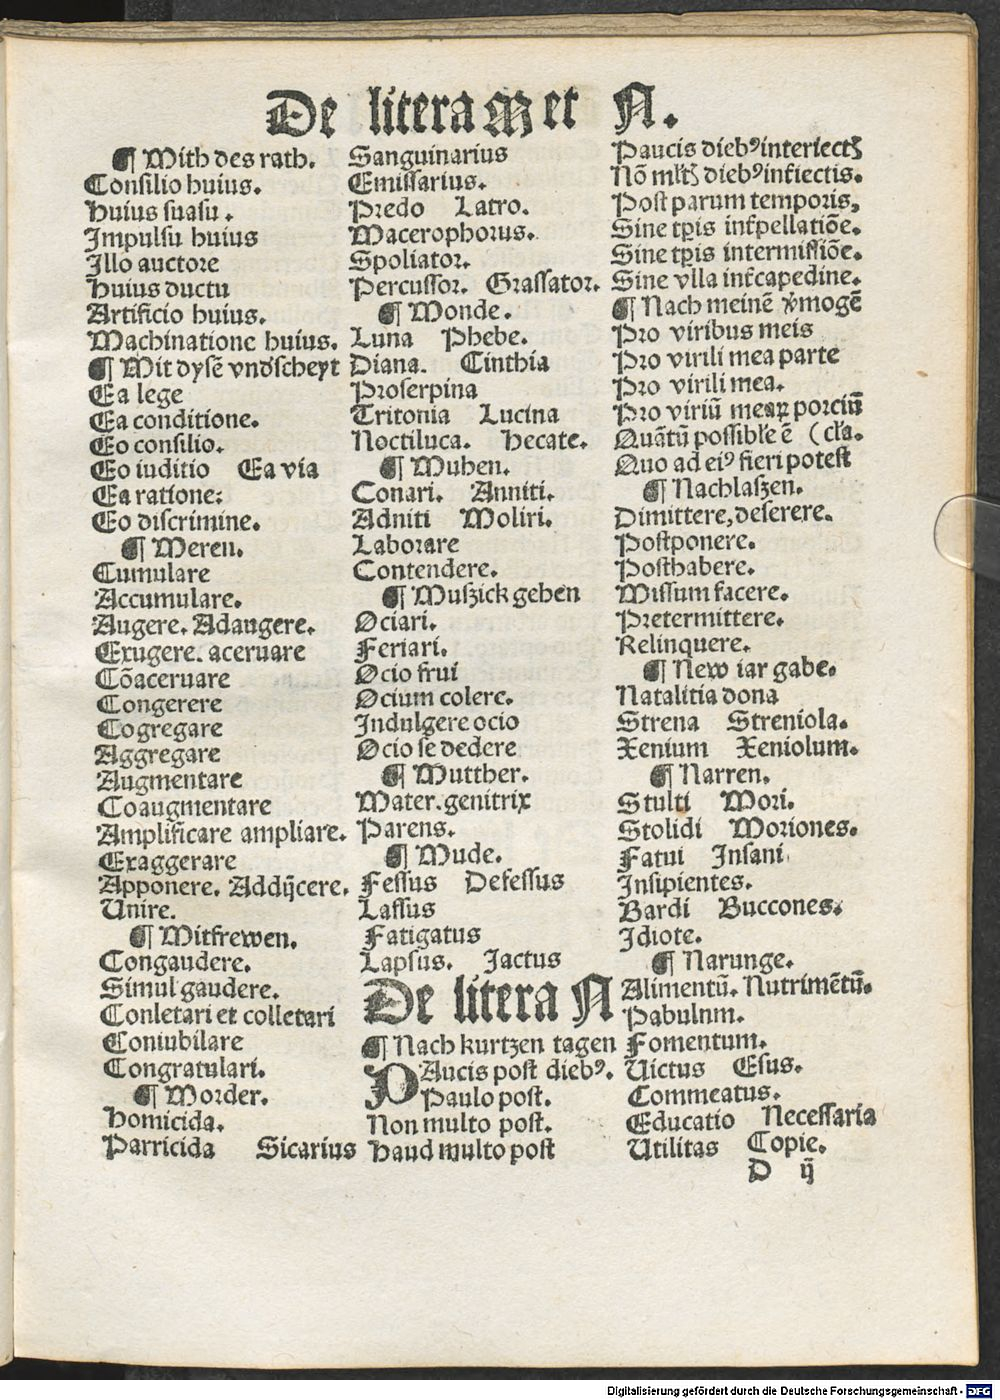 De litera M et N.
¶ Mith des rath.
Consilio huius.
Huius suasu.
Impulsu huius
Illo auctore
Huius ductu
Artificio huius.
Machinatione huius.
¶ Mit dysē vndscheyt
Ea lege
Ea conditione.
Eo consilio.
Eo iuditio Ea via
Ea ratione:
Eo discrimine.
¶ Meren.
Cumulare
Accumulare.
Augere. Adaugere.
Exugere. aceruare
Cōaceruare
Congerere
Cogregare
Aggregare
Augmentare
Coaugmentare
Amplificare ampliare.
Exaggerare
Apponere. Addijcere.
Unire.
¶ Mitfrewen.
Congaudere.
Simul gaudere.
Conletari et colletari
Coniubilare
Congratulari.
¶ Morder.
Homicida.
Parricida Sicarius
Sanguinarius
Emissarius.
Predo Latro.
Macerophorus.
Spoliator.
Percussor. Grassator.
¶ Monde.
Luna Phebe.
Diana. Cinthia
Proserpina
Tritonia Lucina
Noctiluca. Hecate.
¶ Muhen.
Conari. Anniti.
Adniti Moliri.
Laborare
Contendere.
¶ Muszick gehen
Ociari.
Feriari.
Ocio frui
Ocium colere.
Indulgere ocio
Ocio se dedere
¶ Mutther.
Mater. genitrix
Parens.
¶ Mude.
Fessus Defessus
Lassus
Fatigatus
Lapsus. Jactus
De litera N
¶ Nach kurtzen tagen
PAucis post diebꝰ.
Paulo post.
Non multo post.
Haud multo post
Paucis diebꝰ interiectꝭ
Nō mltꝭ diebꝰ inťiectis.
Post parum temporis,
Sine tꝑis inťpellatiōe.
Sine tꝑis intermissiōe.
Sine vlla inťcapedine.
¶ Nach meinē v̓mogē
Pro viribus meis
Pro virili mea parte
Pro virili mea.
Pro viriū meaꝝ porciū
Quātū possibłe ē (cła.
Quo ad eiꝰ fieri potest
¶ Nachlaszen.
Dimittere, deserere.
Postponere.
Posthabere.
Missum facere.
Pretermittere.
Relinquere.
¶ New iar gabe.
Natalitia dona
Strena Streniola.
Xenium Xeniolum.
¶ Narren.
Stulti Mori.
Stolidi Moriones.
Fatui Insani
Insipientes.
Bardi Buccones.
Idiote.
¶ Narunge.
Alimentū. Nutrimētū.
Pabulnm.
Fomentum.
Uictus Esus.
Commeatus.
Educatio Necessaria
Utilitas Copie.
D ij
Digitalisierung gefördert durch die Deutsche Forschungsgemeinschaft - DFG